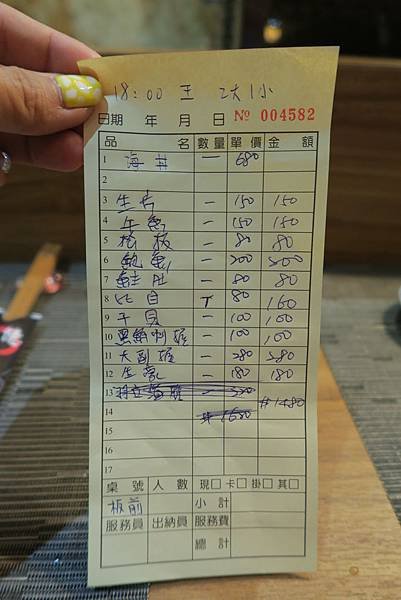 18:00 王 2大1小
日期 年 月 日 No 004582
品名 數量 單價 金額
1 海丼 一 680
2
3 生 一 150 150
4 午魚 一 150 150
5 松板 一 80 80
6 鮑魚 一 200 200
7 鮭肚 一 80 80
8 比目 T 80 160
9 干貝 一 100 100
10 黑鮪 握 一 100 100
11 大副握 一 280 280
12 生 一 180 180
13 #1480
14 # 1680
15
16
17
桌號 人數 現□ 卡□ 掛□ 其□
板前 小計
服務員 出納員 服務費
總計